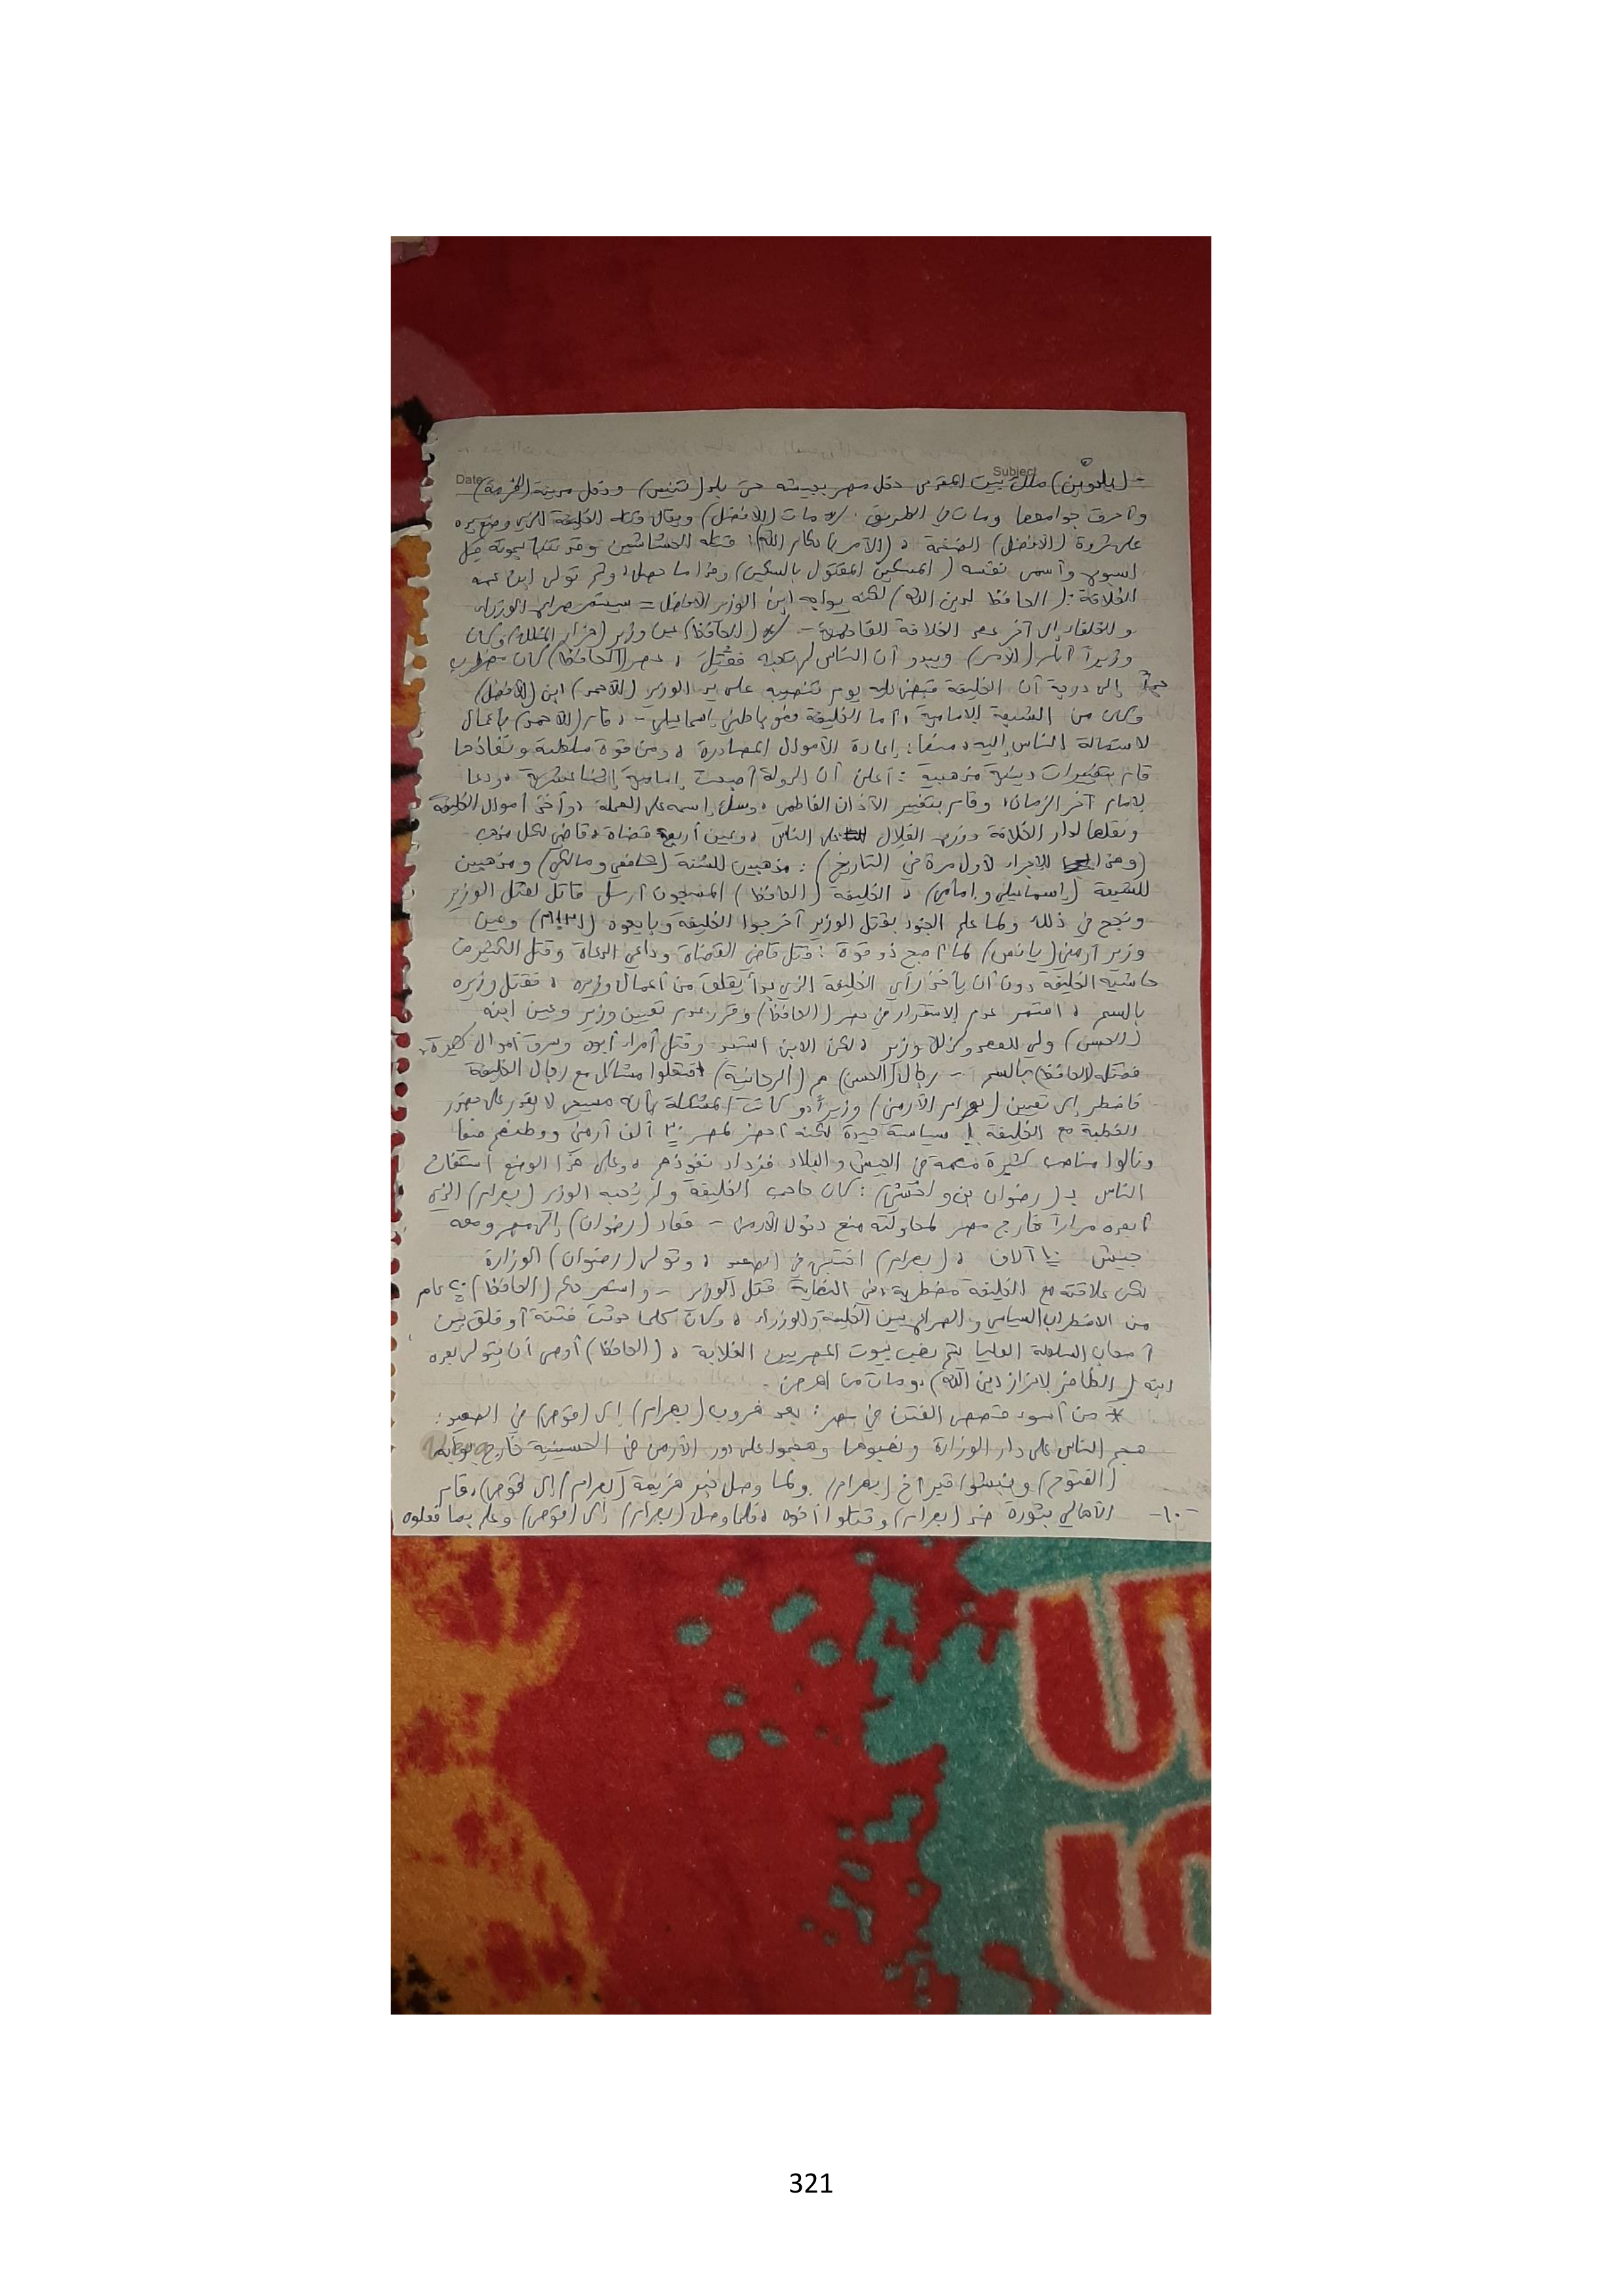 Subject
Date
- (بلدوين) ملك بيت المقدس دخل مصر بجيشه حتى بلد (تنيس) ودخل مدينة (الفرما)
وأحرق جوامعها ومات في الطريق. * مات (الأفضل) ويقال قتله الخليفة الذي وضع يده
على ثروة (الأفضل) الضخمة، (الآمر بأحكام الله): قتله الحشاشين وقد تنبأ بموته قبل
اسبوع وأسمى نفسه (المسكين المقتول بالسكين) وهذا ما حصل، وثم تولى ابن عمه
الخلافة: (الحافظ لدين الله) لكنه يواجه ابن الوزير الأفضل = سيستمر صراع الوزراء
والخلفاء إلى آخر عمر الخلافة الفاطمية - * (الحافظ) عين وزير (هزار الملك) وكان
وزيراً أيام (الآمر) ويبدو أن الناس لم تحبه فقُتل، عصر (الحافظ) كان مضطرب
جداً إلى درجة أن الخليفة قبض عليه يوم تنصيبه على يد الوزير (الأحمد) ابن (الأفضل)
وكان من الشيعة الإمامية، أما الخليفة فهو باطني إسماعيلي - ، قام (الأحمد) بأعمال
لاستمالة الناس إليه، منها: إعادة الأموال المصادرة، ومن قوة سلطته ونفاذها
قام بتغييرات دينية مذهبية: أعلن أن الدولة أصبحت إمامية إثنا عشرية، ودعا
لإمام آخر الزمان، وقام بتغيير الآذان الفاطمي، وسك إسمه على العملة، وأخذ أموال الخليفة
ونقلها لدار الخلافة ووزع الغلال على الناس، وعين أربعة قضاة، قاضي لكل مذهب
(وهذا الإجراء لأول مرة في التاريخ): مذهبين للسُنة (شافعي ومالكي) ومذهبين
للشيعة (إسماعيلي وإمامي)، الخليفة (الحافظ) المسجون أرسل قاتل لقتل الوزير
ونجح في ذلك ولما علم الجنود بقتل الوزير أخرجوا الخليفة وبايعوه وعين
وزير أرمني (يانس) لما أصبح ذو قوة: قتل قاضي القضاة وداعي الدعاة وقتل الكثير من
حاشية الخليفة دون أن يأخذ رأي الخليفة الذي بدأ يقلق من أعمال وزيره، فقتل وزيره
بالسم، استمر عدم الاستقرار في عصر (الحافظ) وقرر عدم تعيين وزير وعين ابنه
(الحسن) ولي للعهد وكذلك وزير، لكن الابن استبد وقتل أمراء أبوه وسرق أموال كثيرة،
فقتله (الحافظ) بالسم - رجال (الحسن) م (الريحانية) افتعلوا مشاكل مع رجال الخليفة
فاضطر إلى تعيين (بهرام الأرمني) وزيراً، وكانت المشكلة بأنه مسيحي لا يقدر على حضور
الخطبة مع الخليفة، سياسة جيدة لكنه أحضر لمصر ٣٠ ألف أرمني ووطنهم فيها
ونالوا مناصب كثيرة مهمة في الجيش والبلاد فزداد نفوذهم، وعلى هذا الوضع استغاث
الناس بـ (رضوان بن ولخشي): كان حاجب الخليفة ولم يُحبه الوزير (بهرام) الذي
أبعده مراراً خارج مصر لمحاولته منع دخول الأرمن - فعاد (رضوان) إلى مصر ومعه
جيش آلاف، (بهرام) اختبى في الصعيد، وتولى (رضوان) الوزارة
لكن علاقته مع الخليفة مضطربة، في النهاية قتل الوزير - واستمر حكم (الحافظ) ٢٠ عام
من الاضطراب السياسي والصراع بين الخليفة والوزراء، وكان كلما حدثت فتنة أو قلق بين
أصحاب السلطة العليا يتم نهب بيوت المصريين الغلابة، (الحافظ) أوصى أن يتولى بعده
ابنه (الظافر لإعزاز دين الله)، ومات من المرض.
* من أسوء قصص الفتن في مصر: بعد هروب (بهرام) إلى (قوص) في الصعيد:
هجم الناس على دار الوزارة ونهبوها وهجموا على دور الأرمن في الحسينية خارج بوابة
(الفتوح) ونبشوا قبر أخ (بهرام). ولما وصل خبر هزيمة (بهرام) إلى (قوص)، قام
الأهالي بثورة ضد (بهرام) وقتلوا أخوه، فلما وصل (بهرام) إلى (قوص) وعلم بما فعلوه
-١٠-
321